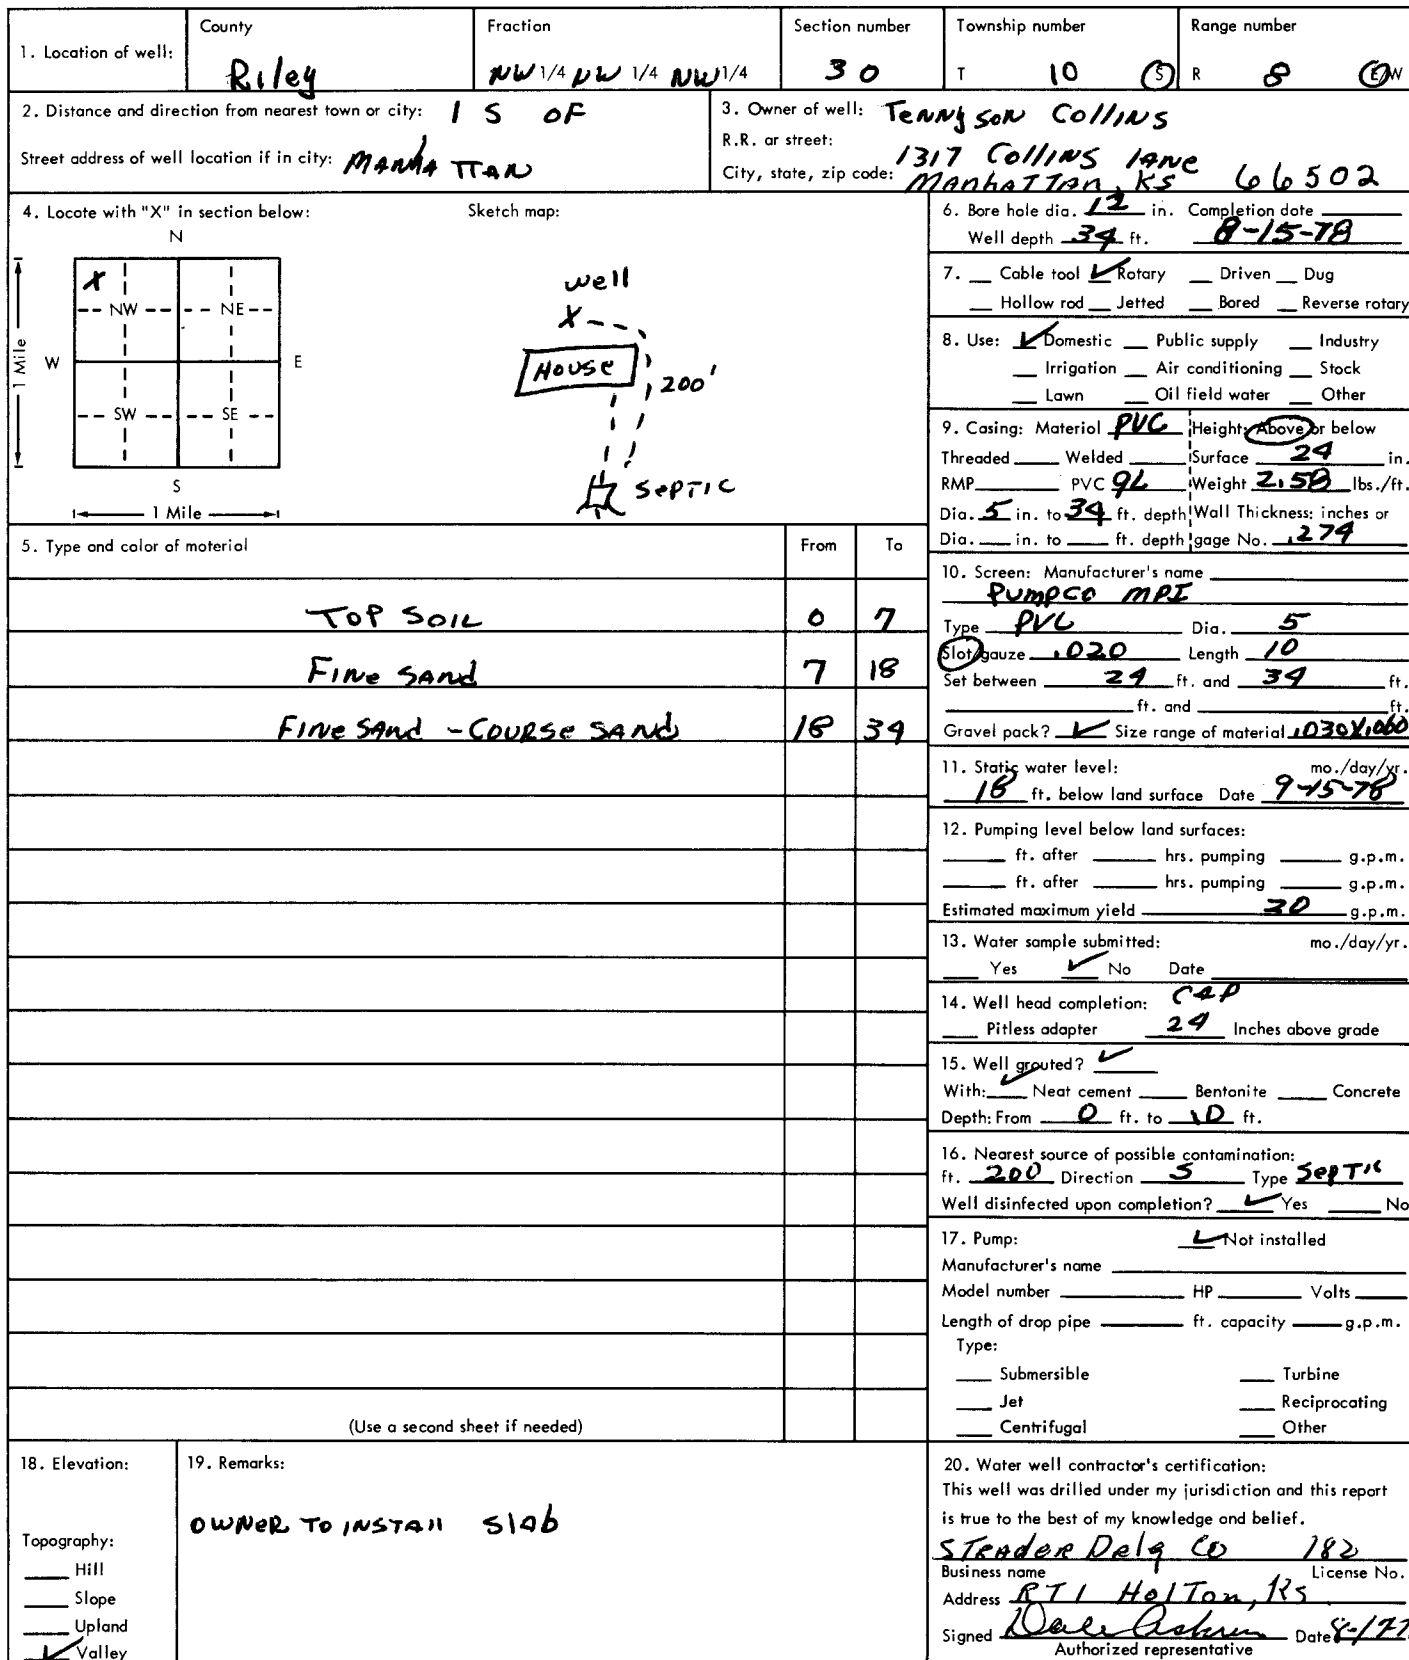 1. Location of well: County Riley Fraction NW 1/4 NW 1/4 NW 1/4 Section number 30 Township number T 10 S Range number R 8 E/W
2. Distance and direction from nearest town or city: 1 S OF
Street address of well location if in city: MANHATTAN
3. Owner of well: Tennyson Collins
R.R. or street: 1317 Collins lane
City, state, zip code: Manhattan, KS 66502
4. Locate with "X" in section below: Sketch map:
N
X
NW NE
W E
SW SE
S
1 Mile
1 Mile
well
X
House
200'
SEPTIC
5. Type and color of material From To
TOP SOIL 0 7
FINE SAND 7 18
FINE SAND - COURSE SAND 18 34
(Use a second sheet if needed)
6. Bore hole dia. 12 in. Completion date
Well depth 34 ft. 8-15-78
7. Cable tool ✓ Rotary Driven Dug
Hollow rod Jetted Bored Reverse rotary
8. Use: ✓ Domestic Public supply Industry
Irrigation Air conditioning Stock
Lawn Oil field water Other
9. Casing: Material PVC Height: Above or below
Threaded Welded Surface 24 in.
RMP PVC GL Weight 2.58 lbs./ft.
Dia. 5 in. to 34 ft. depth Wall Thickness: inches or
Dia. in. to ft. depth gage No. .274
10. Screen: Manufacturer's name
Pumpco MPI
Type PVC Dia. 5
Slot/gauze .020 Length 10
Set between 24 ft. and 34 ft.
ft. and ft.
Gravel pack? ✓ Size range of material .030X.060
11. Static water level: mo./day/yr.
18 ft. below land surface Date 9-15-78
12. Pumping level below land surfaces:
ft. after hrs. pumping g.p.m.
ft. after hrs. pumping g.p.m.
Estimated maximum yield 20 g.p.m.
13. Water sample submitted: mo./day/yr.
Yes ✓ No Date
14. Well head completion: CAP
Pitless adapter 24 Inches above grade
15. Well grouted? ✓
With: ✓ Neat cement Bentonite Concrete
Depth: From 0 ft. to 10 ft.
16. Nearest source of possible contamination:
ft. 200 Direction S Type Septic
Well disinfected upon completion? ✓ Yes No
17. Pump: ✓ Not installed
Manufacturer's name
Model number HP Volts
Length of drop pipe ft. capacity g.p.m.
Type:
Submersible Turbine
Jet Reciprocating
Centrifugal Other
18. Elevation:
Topography:
Hill
Slope
Upland
✓ Valley
19. Remarks:
OWNER TO INSTAll Slab
20. Water well contractor's certification:
This well was drilled under my jurisdiction and this report
is true to the best of my knowledge and belief.
STRADER Delg CO 182
Business name License No.
Address RT 1 Holton, Ks
Signed Dale Date
Authorized representative